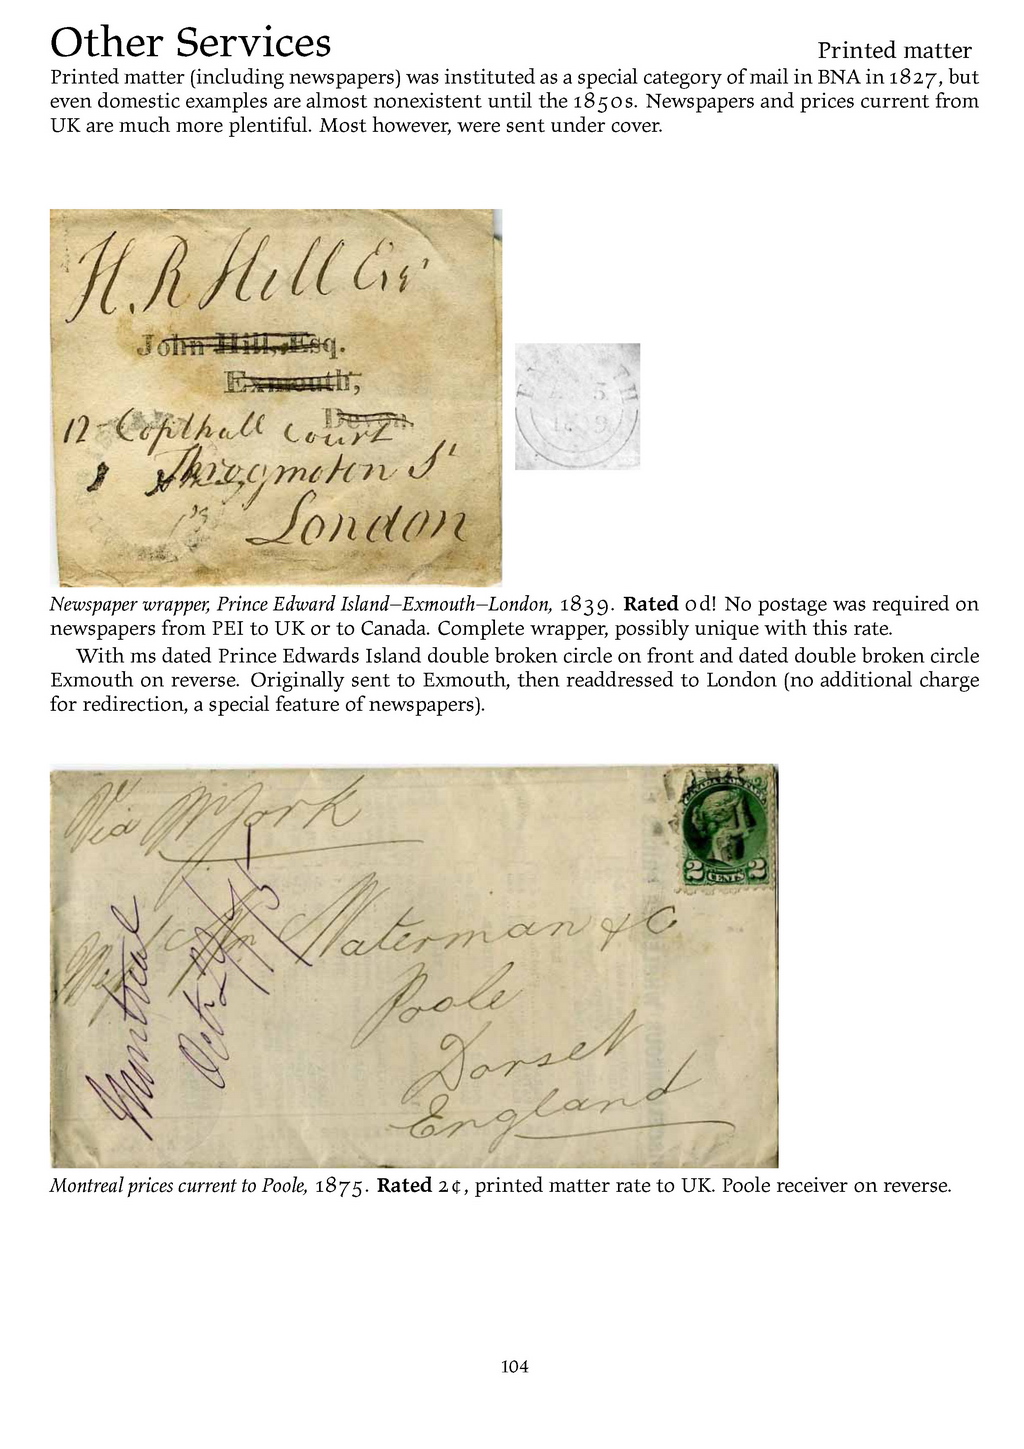 Other Services
Printed matter
Printed matter (including newspapers) was instituted as a special category of mail in BNA in 1827, but
even domestic examples are almost nonexistent until the 1850s. Newspapers and prices current from
UK are much more plentiful. Most however, were sent under cover.
H. R Hill Esqr
John Hill, Esq.
Exmouth,
Devon.
12 Copthall Court
Throgmoton St
London
5
1839
Newspaper wrapper, Prince Edward Island–Exmouth–London, 1839. Rated 0d! No postage was required on
newspapers from PEI to UK or to Canada. Complete wrapper, possibly unique with this rate.
With ms dated Prince Edwards Island double broken circle on front and dated double broken circle
Exmouth on reverse. Originally sent to Exmouth, then readdressed to London (no additional charge
for redirection, a special feature of newspapers).
Via N York
CANADA POSTAGE
2 CENTS 2
Montreal
Waterman & Co
Poole
Dorset
England
Montreal prices current to Poole, 1875. Rated 2¢, printed matter rate to UK. Poole receiver on reverse.
104